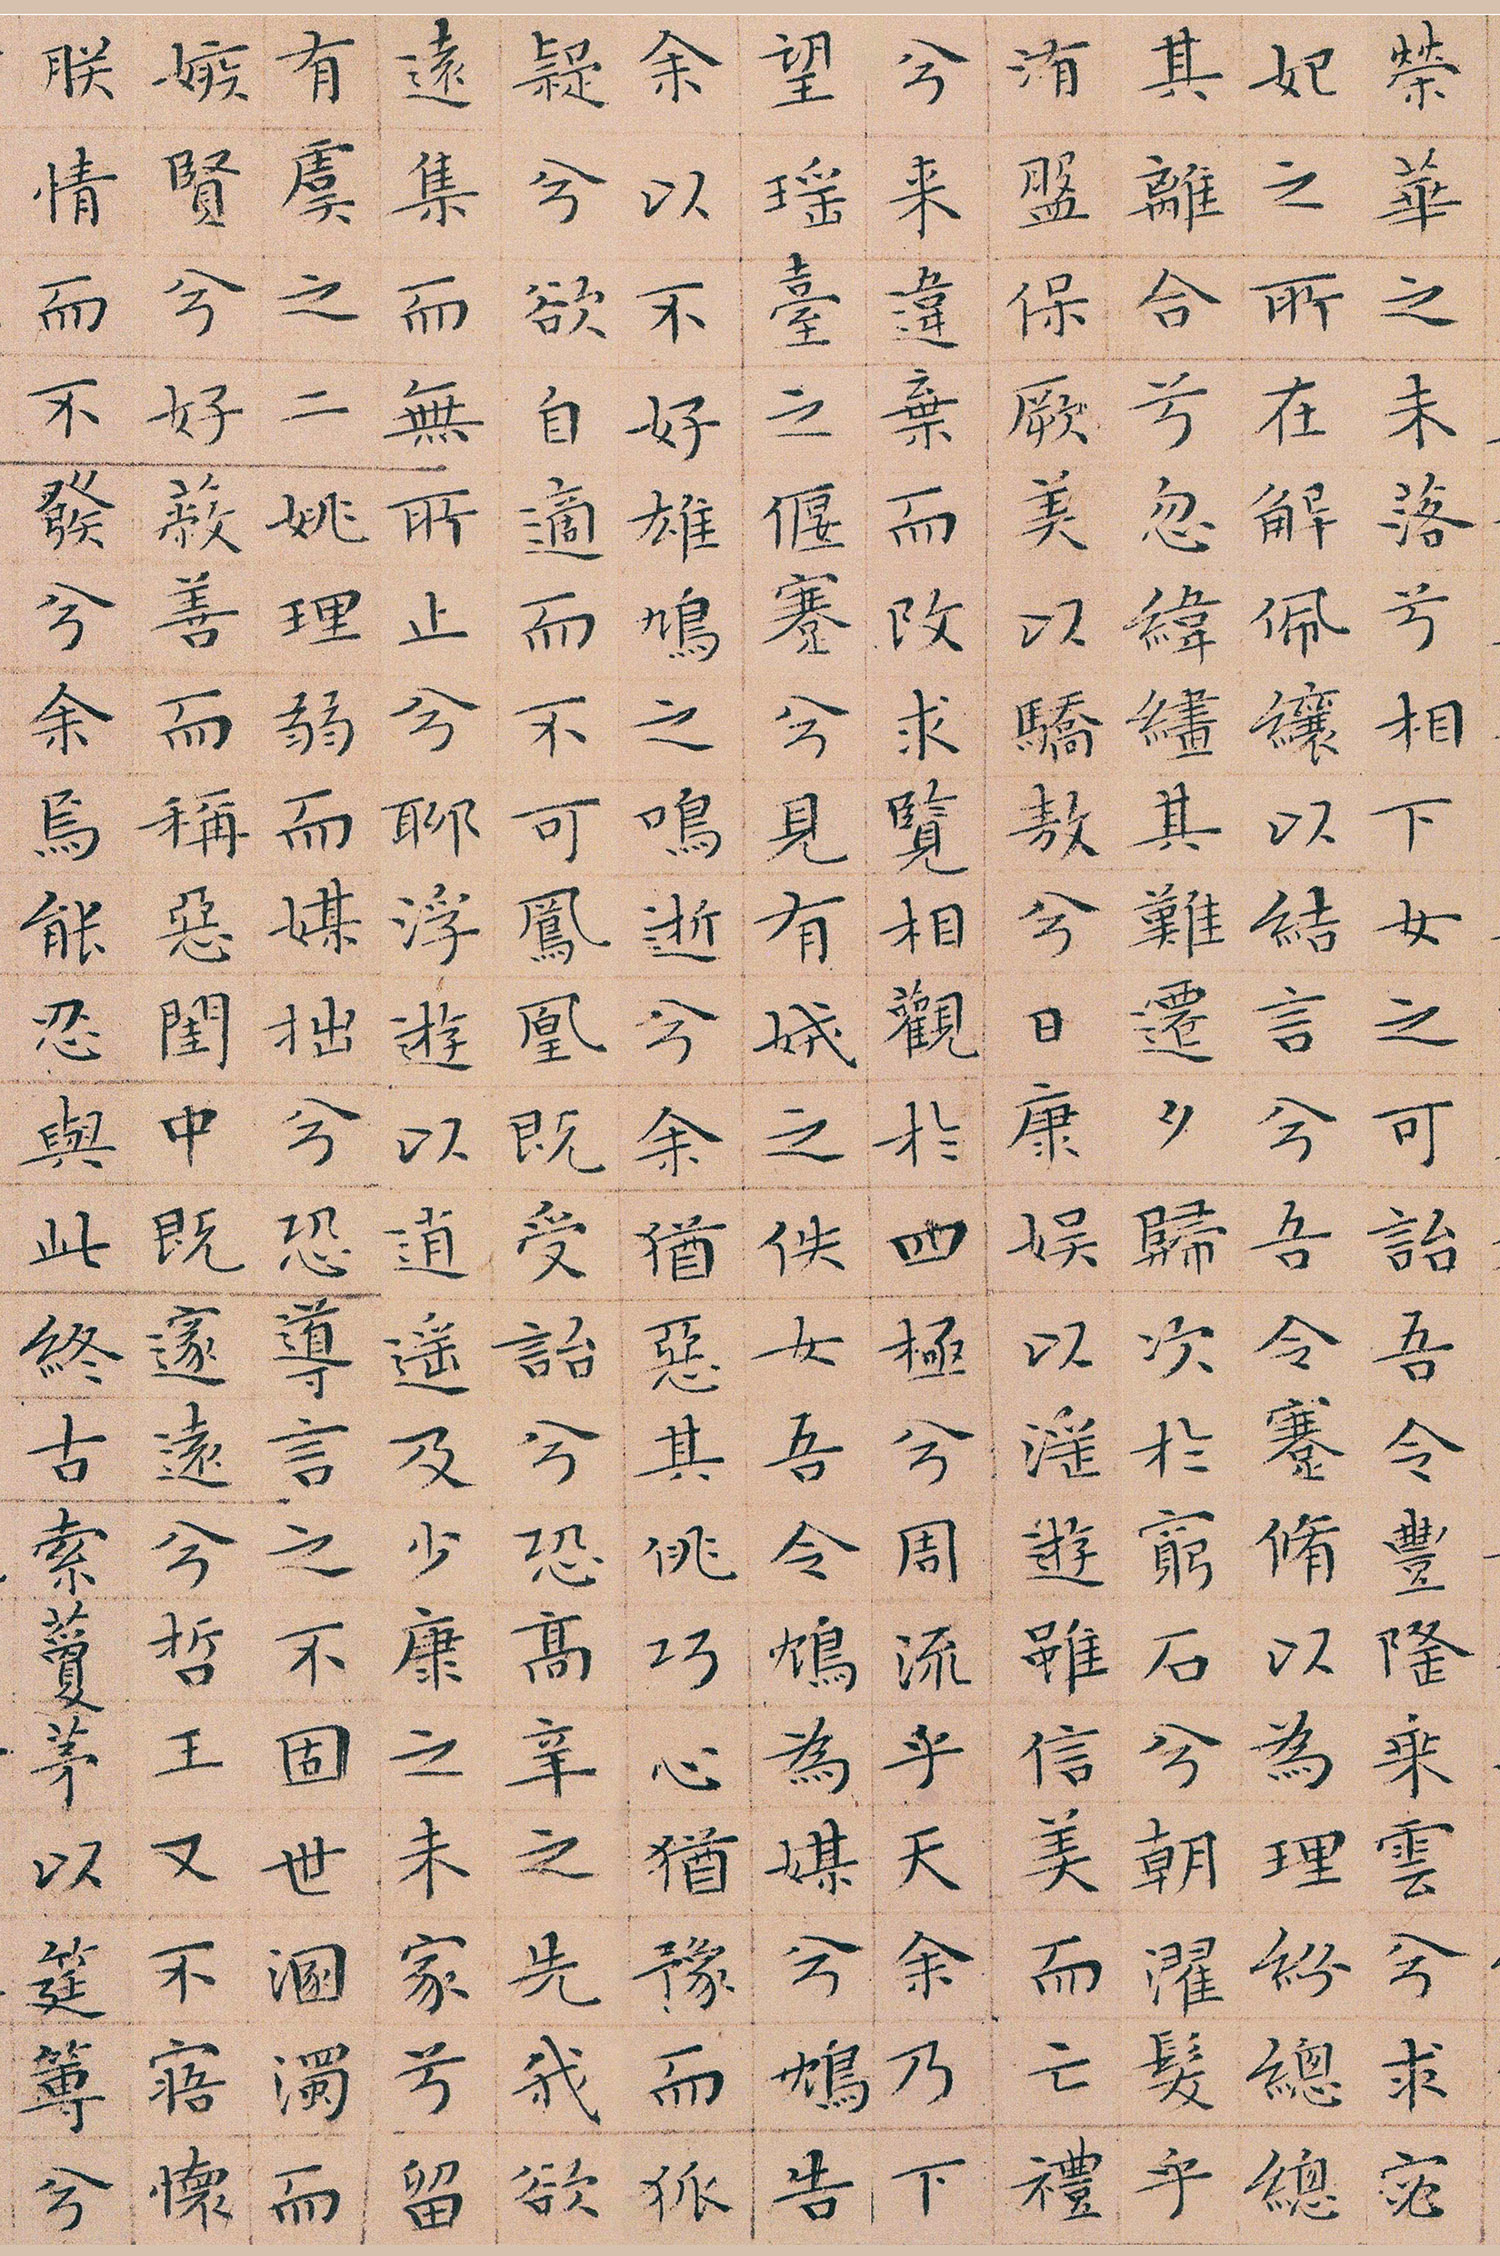 榮華之未落兮相下女之可詒吾令豐隆乘雲兮求宓
妃之所在解佩纕以結言兮吾令蹇脩以為理紛總總
其離合兮忽緯繣其難遷夕歸次於窮石兮朝濯髮乎
洧盤保厥美以驕敖兮日康娱以淫遊雖信美而亡禮
兮来違棄而改求覽相觀於四極兮周流乎天余乃下
望瑶臺之偃蹇兮見有娀之佚女吾令鴆為媒兮鴆告
余以不好雄鳩之鳴逝兮余猶惡其佻巧心猶豫而狐
疑兮欲自適而不可鳳凰既受詒兮恐高辛之先我欲
遠集而無所止兮聊浮遊以逍遥及少康之未家兮留
有虞之二姚理弱而媒拙兮恐導言之不固世溷濁而
嫉賢兮好蔽善而稱惡閨中既邃遠兮哲王又不寤懷
朕情而不發兮余焉能忍與此終古索藑茅以筳篿兮